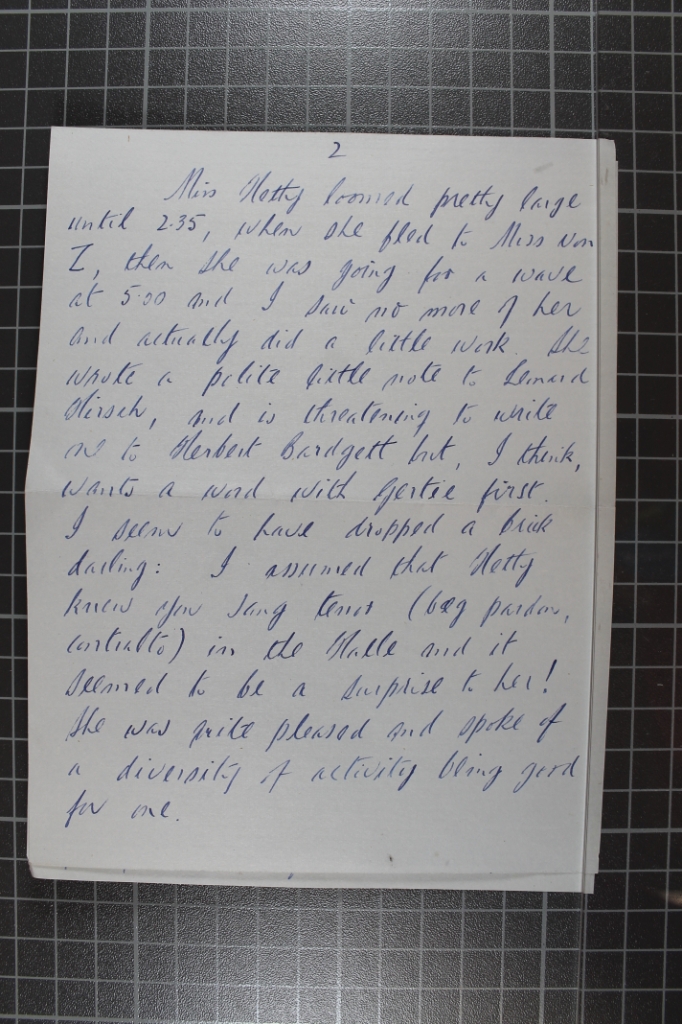 2
Miss Hetty loomed pretty large
until 2.35, when she fled to Miss von
Z, then she was going for a wave
at 5.00 and I saw no more of her
and actually did a little work. She
wrote a polite little note to Leonard
Hirsch, and is threatening to write
to Herbert Bardgett but, I think,
wants a word with Gertie first.
I seem to have dropped a brick
darling: I assumed that Hetty
knew you sang tenor (beg pardon,
contralto) in the Halle and it
seemed to be a surprise to her!
She was quite pleased and spoke of
a diversity of activity being good
for one.